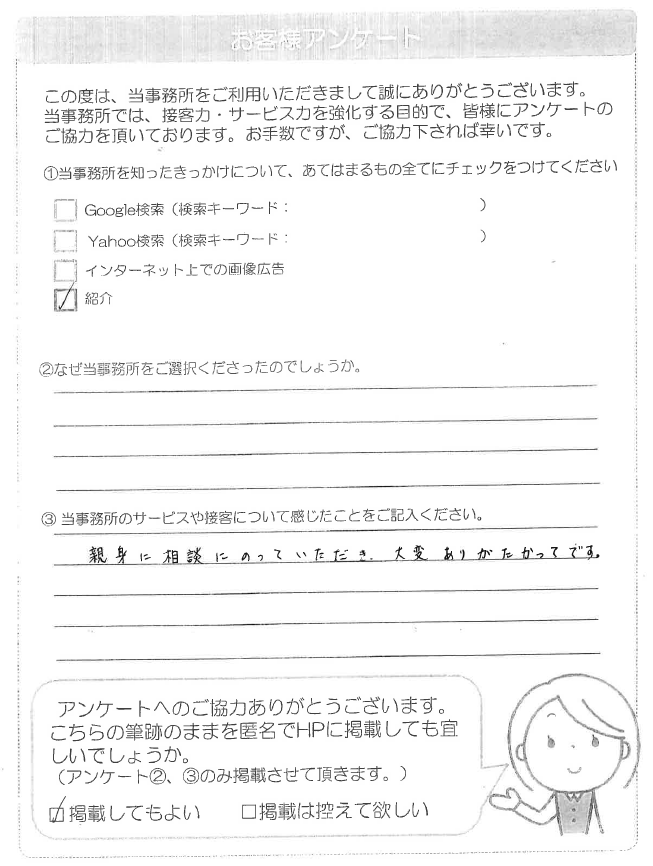 お客様アンケート
この度は、当事務所をご利用いただきまして誠にありがとうございます。
当事務所では、接客力・サービス力を強化する目的で、皆様にアンケートの
ご協力を頂いております。お手数ですが、ご協力下されば幸いです。
①当事務所を知ったきっかけについて、あてはまるもの全てにチェックをつけてください
Google検索（検索キーワード： ）
Yahoo検索（検索キーワード： ）
インターネット上での画像広告
紹介
②なぜ当事務所をご選択くださったのでしょうか。
③ 当事務所のサービスや接客について感じたことをご記入ください。
親身に相談にのっていただき、大変ありがたかってです。
アンケートへのご協力ありがとうございます。
こちらの筆跡のままを匿名でHPに掲載しても宜
しいでしょうか。
（アンケート②、③のみ掲載させて頂きます。）
☑掲載してもよい □掲載は控えて欲しい